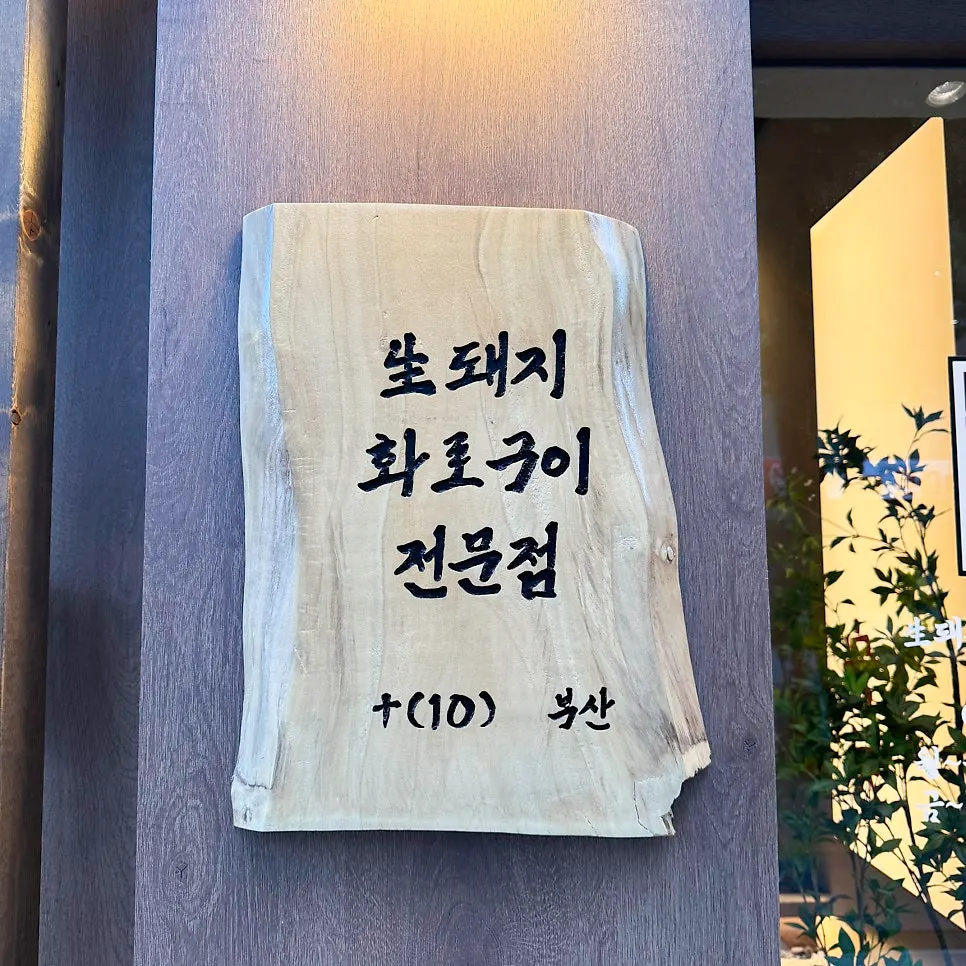 生돼지
화로구이
전문점
十(10) 부산
生돼